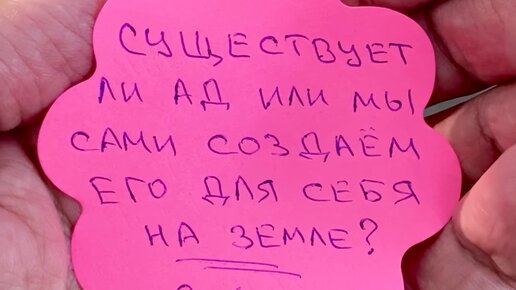 СУЩЕСТВУЕТ
ЛИ АД ИЛИ МЫ
САМИ СОЗДАЁМ
ЕГО ДЛЯ СЕБЯ
НА ЗЕМЛЕ?